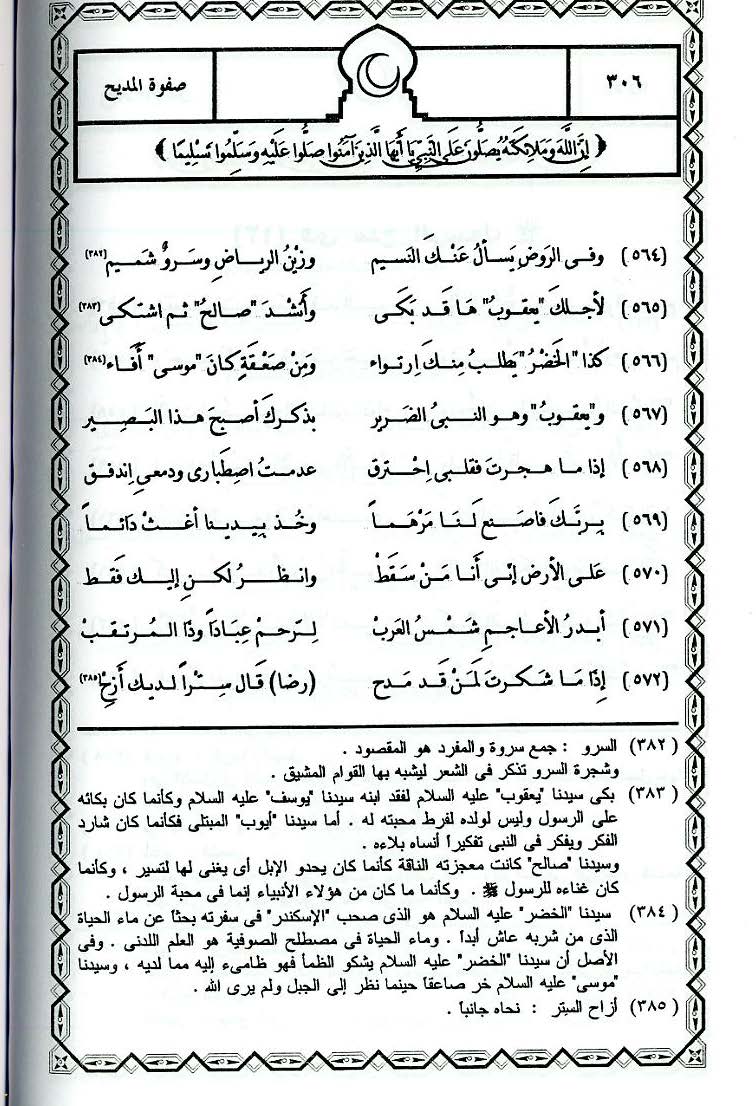 ٣٠٦
صفوة المديح
﴿ إِنَّ اللَّهَ وَمَلَائِكَتَهُ يُصَلُّونَ عَلَى النَّبِيِّ يَا أَيُّهَا الَّذِينَ آمَنُوا صَلُّوا عَلَيْهِ وَسَلِّمُوا تَسْلِيمًا ﴾
(٥٦٤) وفى الرَوض يَسألُ عَنْكَ النَسيم وزيْنُ الرياضِ وسَروٌ شَميم(٣٨٢)
(٥٦٥) لأجلكَ "يعقوبُ" هَا قَد بَكى وأنشَدَ "صالحُ" ثم اشتكى(٣٨٣)
(٥٦٦) كذا "الخَضْرُ" يَطلبُ مِنكَ ارتواء وَمِنْ صَعْقَةٍ كانَ "موسى" أفَاء(٣٨٤)
(٥٦٧) و"يعقوبُ" وهو النبىُ الضَرير بذكركَ أصبحَ هذا البَصِير
(٥٦٨) إذا ما هجرتَ فقلبى اِحْترق عدمتُ اصطبارى ودمعى اِندفق
(٥٦٩) بِربّكَ فاصنع لَنا مَرْهَماً وخُذ بيدينا أغثْ دائماً
(٥٧٠) عَلى الأرض إنّى أنا مَنْ سَقَطْ وانظرُ لكن إليك فَقط
(٥٧١) أبدرُ الأعاجمِ شَمْسُ العَربْ لِترحمْ عِبَاداً وذَا المُرتقبْ
(٥٧٢) إذَا مَا شَكرتَ لَمنْ قَد مَدح (رضا) قَال سِتْراً لديك أزِحْ(٣٨٥)
(٣٨٢) السرو : جمع سروة والمفرد هو المقصود .
وشجرة السرو تذكر فى الشعر ليشبه بها القوام المشيق .
(٣٨٣) بكى سيدنا "يعقوب" عليه السلام لفقد ابنه سيدنا "يوسف" عليه السلام وكأنما كان بكائه
على الرسول وليس لولده لفرط محبته له . أما سيدنا "أيوب" المبتلى فكأنما كان شارد
الفكر ويفكر فى النبى تفكيراً أنساه بلاءه .
وسيدنا "صالح" كانت معجزته الناقة كأنما كان يحدو الإبل أى يغنى لها لتسير ، وكأنما
كان غناءه للرسول ﷺ . وكأنما ما كان من هؤلاء الأنبياء إنما فى محبة الرسول .
(٣٨٤) سيدنا "الخضر" عليه السلام هو الذى صحب "الإسكندر" فى سفرته بحثاً عن ماء الحياة
الذى من شربه عاش أبداً . وماء الحياة فى مصطلح الصوفية هو العلم اللدنى . وفى
الأصل أن سيدنا "الخضر" عليه السلام يشكو الظمأ فهو ظامىء إليه مما لديه ، وسيدنا
"موسى" عليه السلام خر صاعقاً حينما نظر إلى الجبل ولم يرى الله .
(٣٨٥) أزاح السِتر : نحاه جانباً .